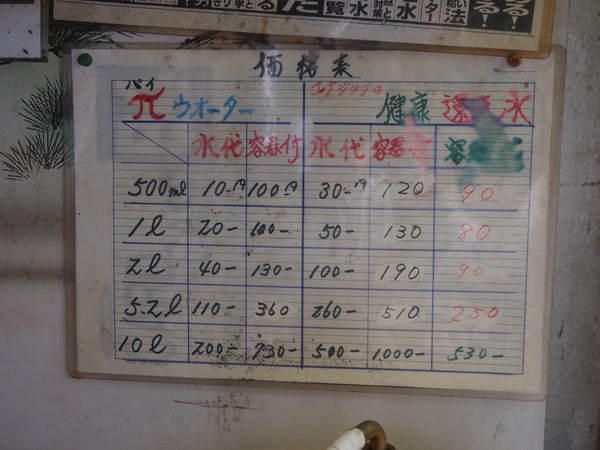 価格表
パイ
πウオーター 健康 還 水
水代 容器付 水代 容器
500ml 10-円 100円 30-円 120 90
1l 20- 100- 50- 130 80
2l 40- 130- 100- 190 90
5.2l 110- 360 260- 510 250
10l 200- 730- 500- 1000- 530-